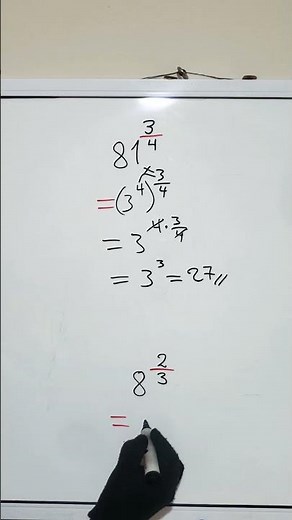 81^(3/4)
= (3^4)^(3/4)
= 3^(4·3/4)
= 3^3 = 27 //
8^(2/3)
=